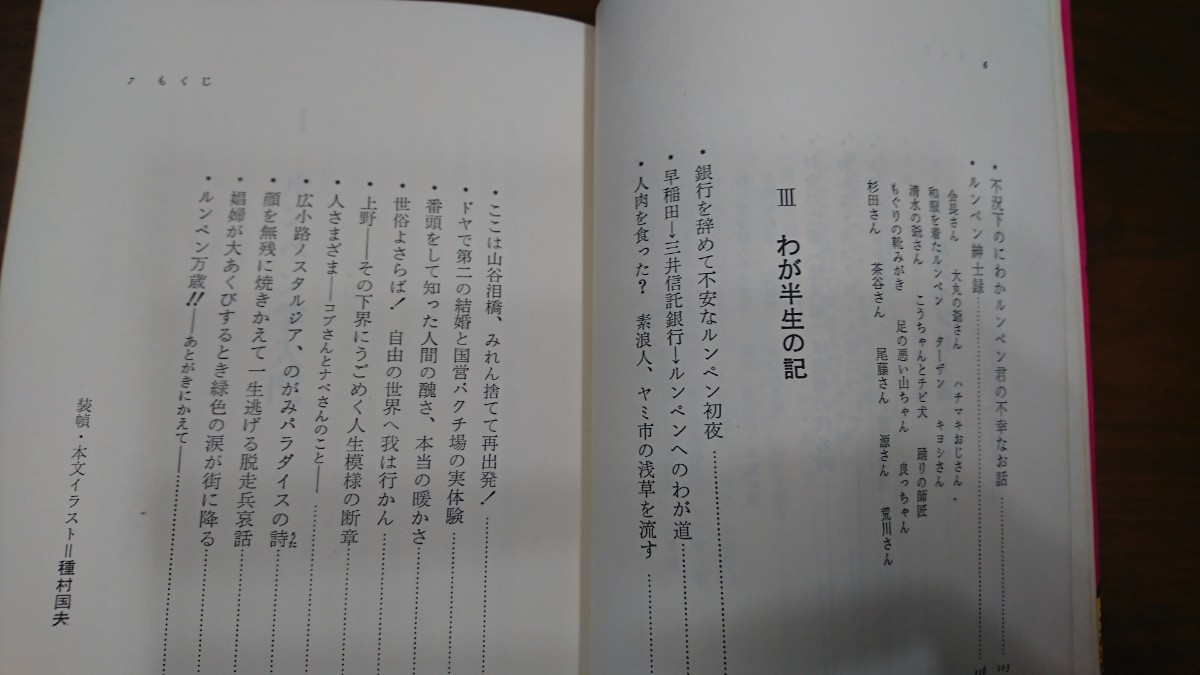 6
・不況下のにわかルンペン君の不幸なお話……103
・ルンペン紳士録……116
会長さん 大丸の爺さん ハチマキおじさん・
和服を着たルンペン ターザン キヨシさん
清水の爺さん こうちゃんとチビ犬 踊りの師匠
もぐりの靴みがき 足の悪い山ちゃん 良っちゃん
杉田さん 茶谷さん 尾藤さん 源さん 荒川さん
Ⅲ わが半生の記
・銀行を辞めて不安なルンペン初夜……
・早稲田→三井信託銀行→ルンペンへのわが道……
・人肉を食った? 素浪人、ヤミ市の浅草を流す……
7 もくじ
・ここは山谷泪橋、みれん捨てて再出発!……
・ドヤで第二の結婚と国営バクチ場の実体験……
・番頭をして知った人間の醜さ、本当の暖かさ……
・世俗よさらば! 自由の世界へ我は行かん……
・上野――その下界にうごめく人生模様の断章……
・人さまざま――コブさんとナベさんのこと――……
・広小路ノスタルジア、のがみパラダイスの詩うた……
・顔を無残に焼きかえて一生逃げる脱走兵哀話……
・娼婦が大あくびするとき緑色の涙が街に降る……
・ルンペン万歳!!――あとがきにかえて――……
装幀・本文イラスト=種村国夫